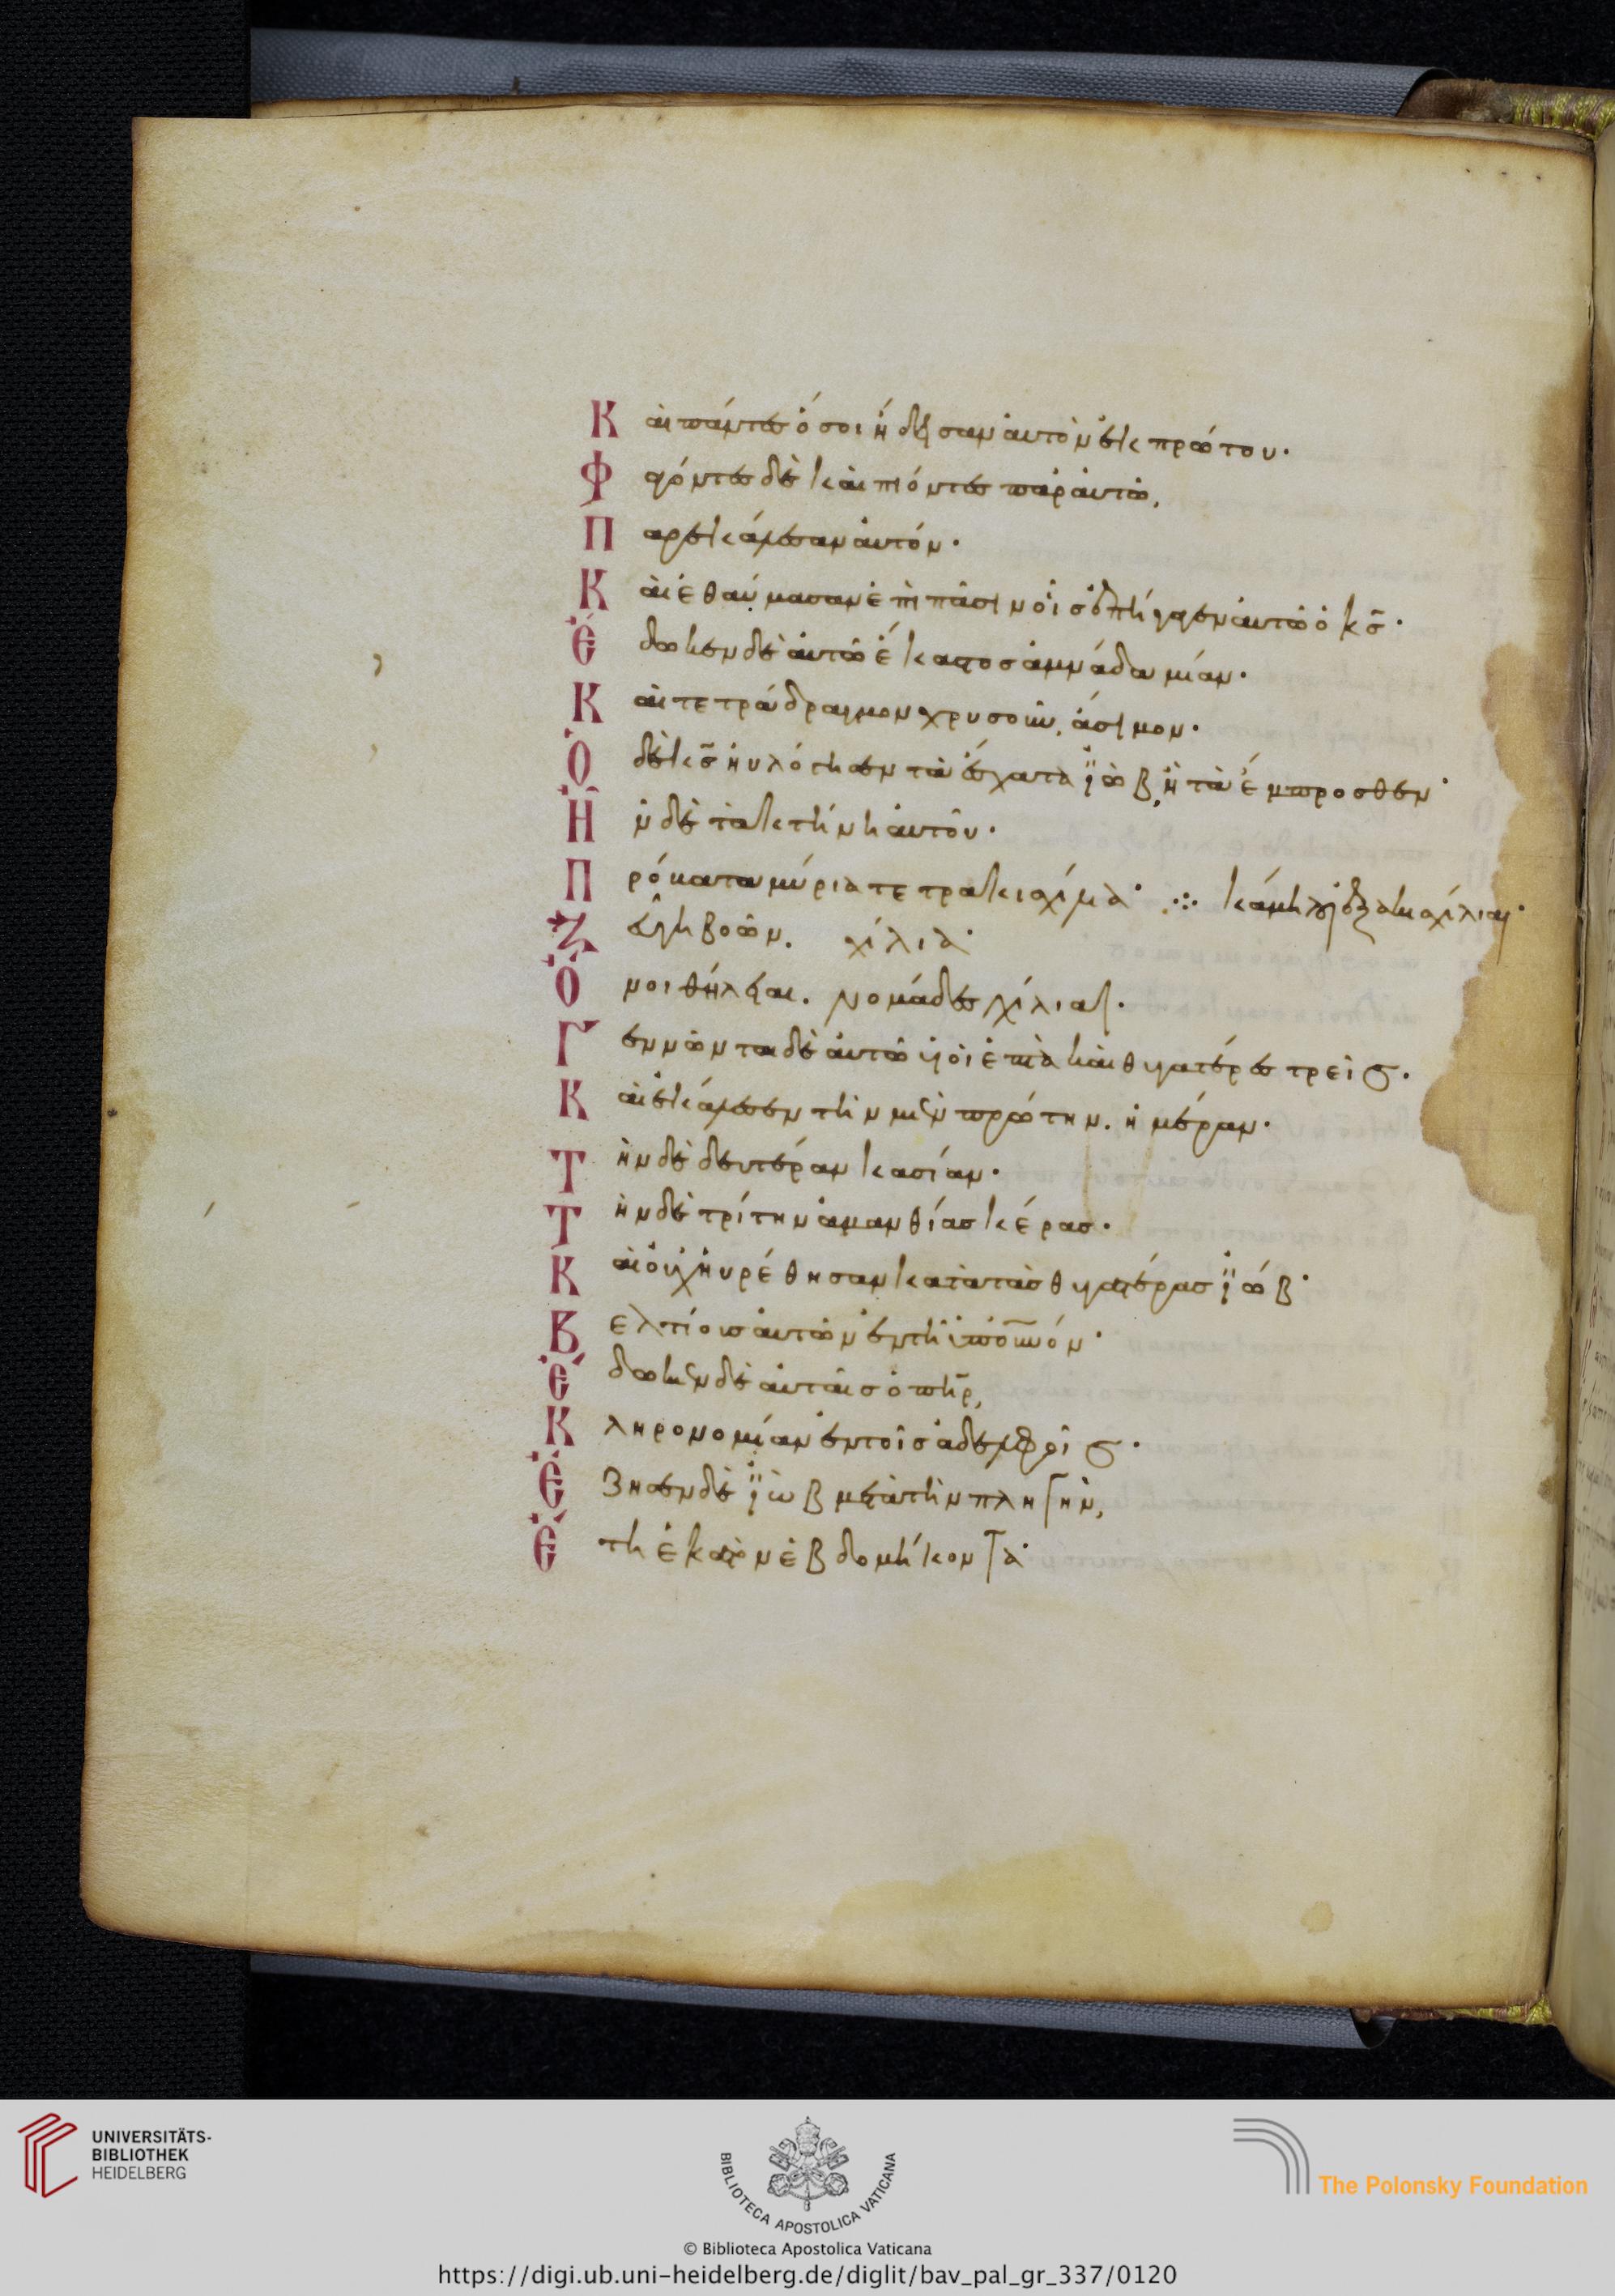 Καὶ πάντες ὅσοι ἤδεισαν αὐτὸν ἐκ πρώτου·
Φαγόντες δὲ καὶ πιόντες παρ' αὐτῶ,
Παρεκάλεσαν αὐτόν·
Καὶ ἐθαύμασαν ἐπὶ πᾶσιν οἷς ἐπήγαγεν αὐτῶ ὁ κς̄·
Ἔδωκεν δὲ αὐτῶ ἕκαστος ἀμνάδα μίαν·
Καὶ τετράδραχμον χρυσοῦν, ἄσημον·
Ὁ δὲ κς̄ ηὐλόγησεν τὰ ἔσχατα ϊὼβ, ἢ τὰ ἔμπροσθεν·
Ἦν δὲ τὰ κτήνη αὐτοῦ·
Πρόβατα μύρια τετρακισχίλια· ⁘ κάμηλοι ἑξακισχίλιαι·
Ζεύγη βοῶν. χίλια·
Ὄνοι θήλειαι. νομάδες χίλιαι·
Γεννῶνται δὲ αὐτῶ υἱοὶ ἑπτὰ καὶ θυγατέρες τρεῖς·
Καὶ ἐκάλεσεν τὴν μὲν πρώτην. ἡμέραν·
Τὴν δὲ δευτέραν κασίαν·
Τὴν δὲ τρίτην ἀμανθίας κέρας·
Καὶ οὐχ ηὑρέθησαν κατὰ τὰς θυγατέρας ϊώβ·
Βελτίους αὐτῶν ἐν τῆ ὑπ' οὐνόν·
Ἔδωκεν δὲ αὐταῖς ὁ πηρ̄,
Κληρονομίαν ἐν τοῖς ἀδελφοῖς·
Ἔζησεν δὲ ϊὼβ μετὰ τὴν πληγὴν,
Ἔτη ἑκατὸν ἑβδομήκοντα·
UNIVERSITÄTS-
BIBLIOTHEK
HEIDELBERG
BIBLIOTECA APOSTOLICA VATICANA
The Polonsky Foundation
© Biblioteca Apostolica Vaticana
https://digi.ub.uni-heidelberg.de/diglit/bav_pal_gr_337/0120